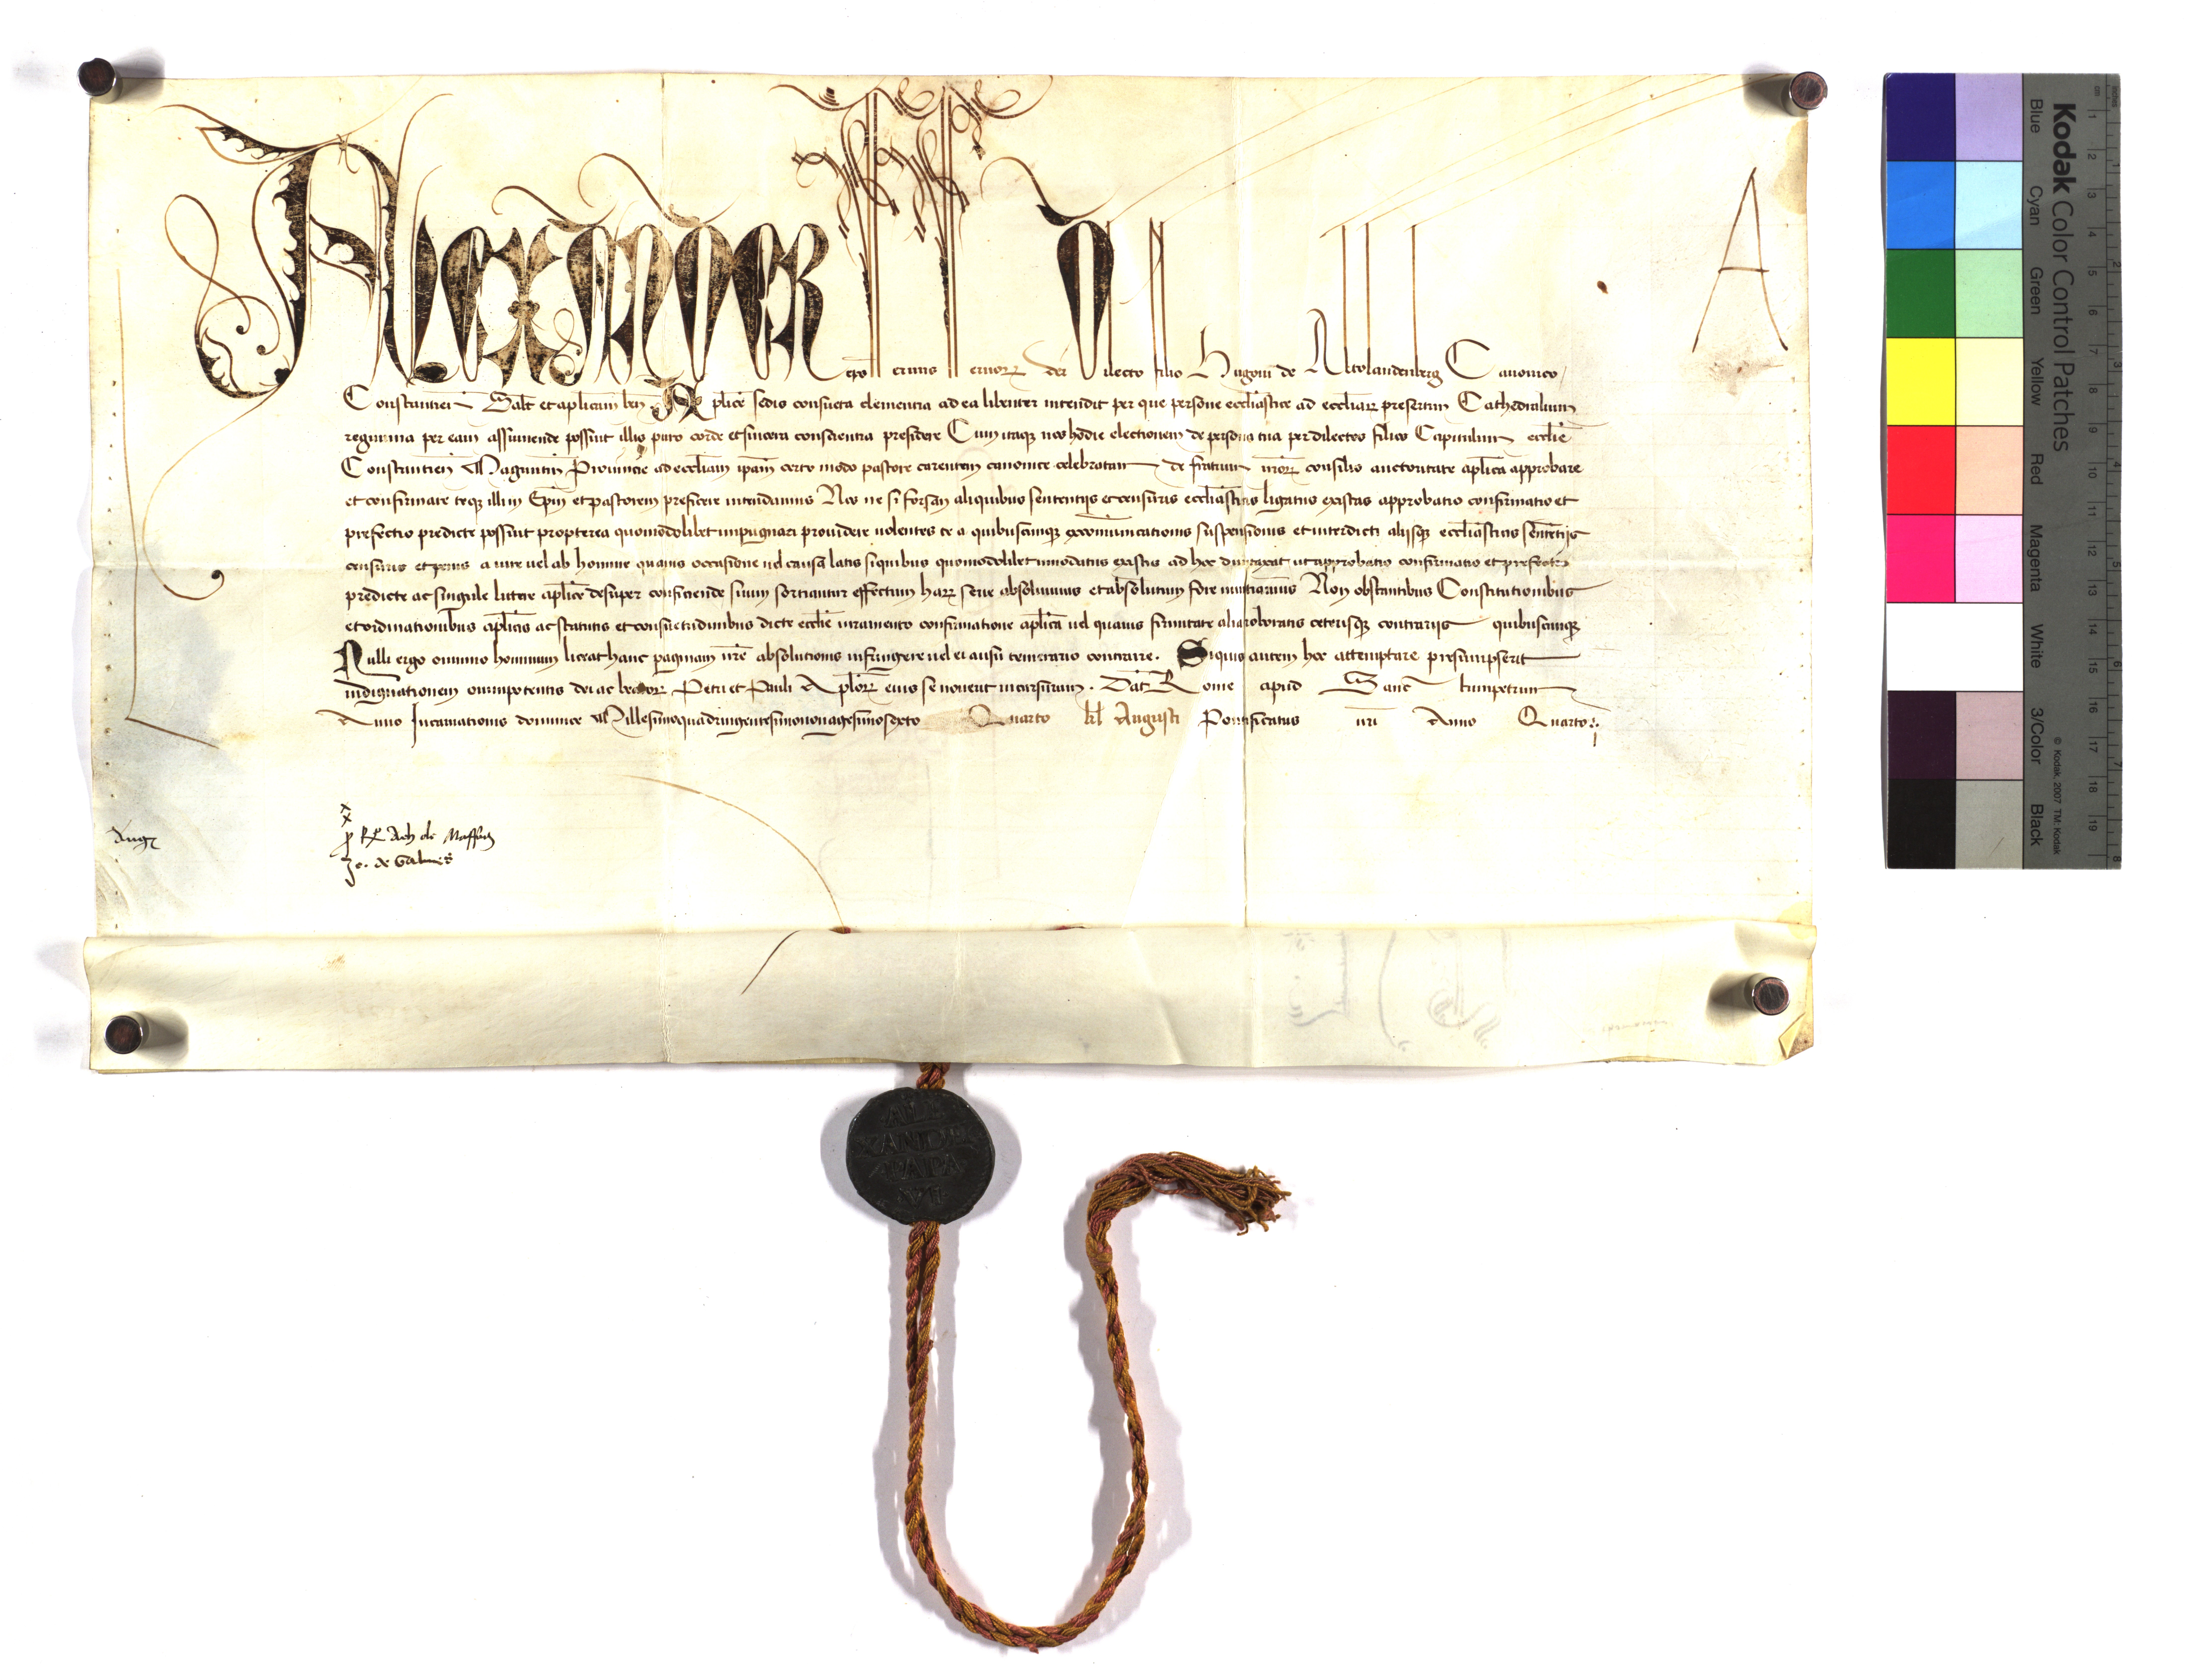 Alexander ep̃us seruus seruoꝝ dei Dilecto filio Hugoni de Altolandenberg Canonico
Constantieñ Salt̃ et aplicam beñ Aplice sedis consueta clementia ad ea libenter intendit per que persone ecclesiastice ad eccliaꝝ presertim Cathedralium
regimina per eam assumende possint illis puro corde et sincera conscientia presidere Cum itaqꝫ nos hodie electionem de persona tua per dilectos filios Capitulum ecclie
Constantieñ Maguntiñ Prouincie ad eccliam ipam certo modo pastore carentem canonice celebratam de fratrum nr̃oꝝ consilio auctoritate aplica approbare
et confirmare teqꝫ illius Ep̃m et pastorem preficere intendamus Nos ne si forsan aliquibus sententijs et censuris ecclesiasticis ligatus existas approbatio confirmatio et
prefectio predicte possint propterea quomodolibet impugnari prouidere uolentes te a quibuscunqꝫ excomunicationis suspensionis et interdicti alijsqꝫ ecclesiasticis sententijs
censuris et penis a iure uel ab homine quauis occasione uel causa latis siquibus quomodolibet innodatus existis ad hoc dumtaxat ut approbatio confirmatio et prefectio
predicte ac singule littere aplice desuper conficiende suum sortiantur effectum haꝝ serie absoluimus et absolutum fore nuntiamus Non obstantibus Constitutionibus
et ordinationibus aplicis ac statutis et consuetudinibus dicte ecclie iuramento confirmatione aplica uel quauis firmitate alia roboratis ceterisqꝫ contrarijs quibuscunqꝫ
Nulli ergo omnino hominum liceat hanc paginam nr̃e absolutionis infringere uel ei ausu temerario contraire. Siquis autem hoc attemptare presumpserit
indignationem omnipotentis dei ac beatoꝝ Petri et Pauli Aploꝝ eius se nouerit incursurum. Dat̃ Rome apud Sanc tumpetrum
Anno Incarnationis dominice Millesimoquadringentesimononagesimosexto Quarto kl̃ Augusti Pontificatus nr̃i Anno Quarto
A
Aug
de Maffeis
Jo. de Galues
ALE
XANDER
PAPA
VI
Kodak Color Control Patches
Blue Cyan Green Yellow Red Magenta White 3/Color Black
© Kodak, 2007 TM: Kodak
cm 1 2 3 4 5 6 7 8 9 10 11 12 13 14 15 16 17 18 19
inches 1 2 3 4 5 6 7 8